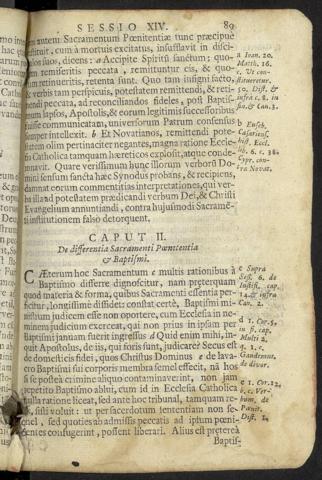 SESSIO XIV. 89
em autem Sacramentum Pœnitentiæ tunc præcipuè
stituit, cum à mortuis excitatus, insufflavit in disci-
pulos suos, dicens: a Accipite Spiritũ sanctum; quo-
rum remiseritis peccata, remittuntur eis, & quo-
rum retinueritis, retenta sunt. Quo tam insigni facto,
& verbis tam perspicuis, potestatem remittendi, & reti-
nendi peccata, ad reconciliandos fideles, post Baptis-
mum lapsos, Apostolis, & eorum legitimis successoribus
fuisse communicatam, universorum Patrum consensus
semper intellexit. b Et Novatianos, remittendi pote-
statem olim pertinaciter negantes, magna ratione Eccle-
sia Catholica tamquam hæreticos explosit, atque conde-
mnavit. Quare verissimum hunc illorum verborũ Do-
mini sensum sancta hæc Synodus probans, & recipiens,
damnat eorum commentitias interpretationes, qui ver-
ba illa ad potestatem prædicandi verbum Dei, & Christi
Evangelium annuntiandi, contra hujusmodi Sacramē-
ti institutionem falsò detorquent.
a Ioan. 20.
Matth. 16.
c. Ut con-
stitueretur.
50. Dist. &
infra c. 8. in
fin. & Can. 3.
b Euseb.
Cæsariens.
hist. Eccl.
lib. 6. c. 38.
Cypr. con-
tra Novat.
CAPUT II.
De differentia Sacramenti Pœnitentiæ
& Baptismi.
CÆterum hoc Sacramentum c multis rationibus à
Baptismo differre dignoscitur, nam præterquam
quòd materia & forma, quibus Sacramenti essentia per-
ficitur, longissimè dissidet: constat certè, Baptismi mi-
nistrum judicem esse non oportere, cum Ecclesia in ne-
minem judicium exerceat, qui non prius in ipsam per
Baptismi januam fuerit ingressus d Quid enim mihi, in-
quit Apostolus, de iis, qui foris sunt, judicare? Secus est
de domesticis fidei, quos Christus Dominus e de lava-
cro Baptismi sui corporis membra semel effecit, nã hos
si se postea crimine aliquo contaminaverint, non jam
repetito Baptismo ablui, cum id in Ecclesia Catholica
nulla ratione liceat, sed ante hoc tribunal, tamquam re-
os, sisti voluit: ut per sacerdotum sententiam non se-
mel, sed quoties ab admissis peccatis ad ipsum pœni-
tentes confugerint, possent liberari. Alius est præterea
Baptis-
c Supra
Sess. 6. de
Iustif. cap.
14. & infra
Can. 2.
d 1. Cor. 5.
in fi. cap.
Multi 2.
q. 1. c.
Gaudemus.
de divor.
e 1. Cor. 12.
c. Ver-
bum, de
Pœnit.
Dist. 1.